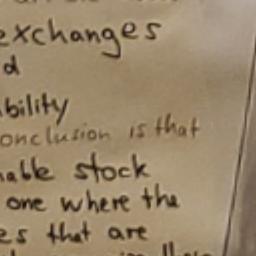 exchanges
d
bility
onclusion is that
nable stock
one where the
es that are